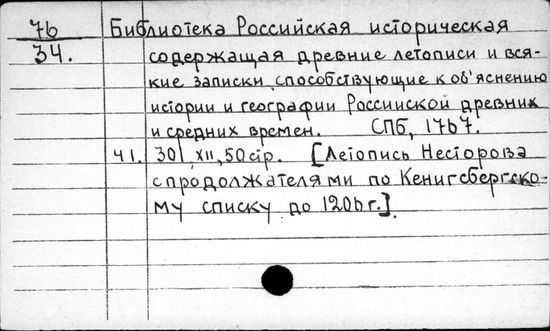 76 Библиотека Российская историческая
34. содержащая древние летописи и вся-
кие записки, способствующие к об'яснению
истории и географии Российской древних
и средних времен. СПб, 1767.
Ч1. 30l, XII, 50стр. [Летопись Несторова
с продолжателями по Кенигсбергско-
му списку до 1206 г.]